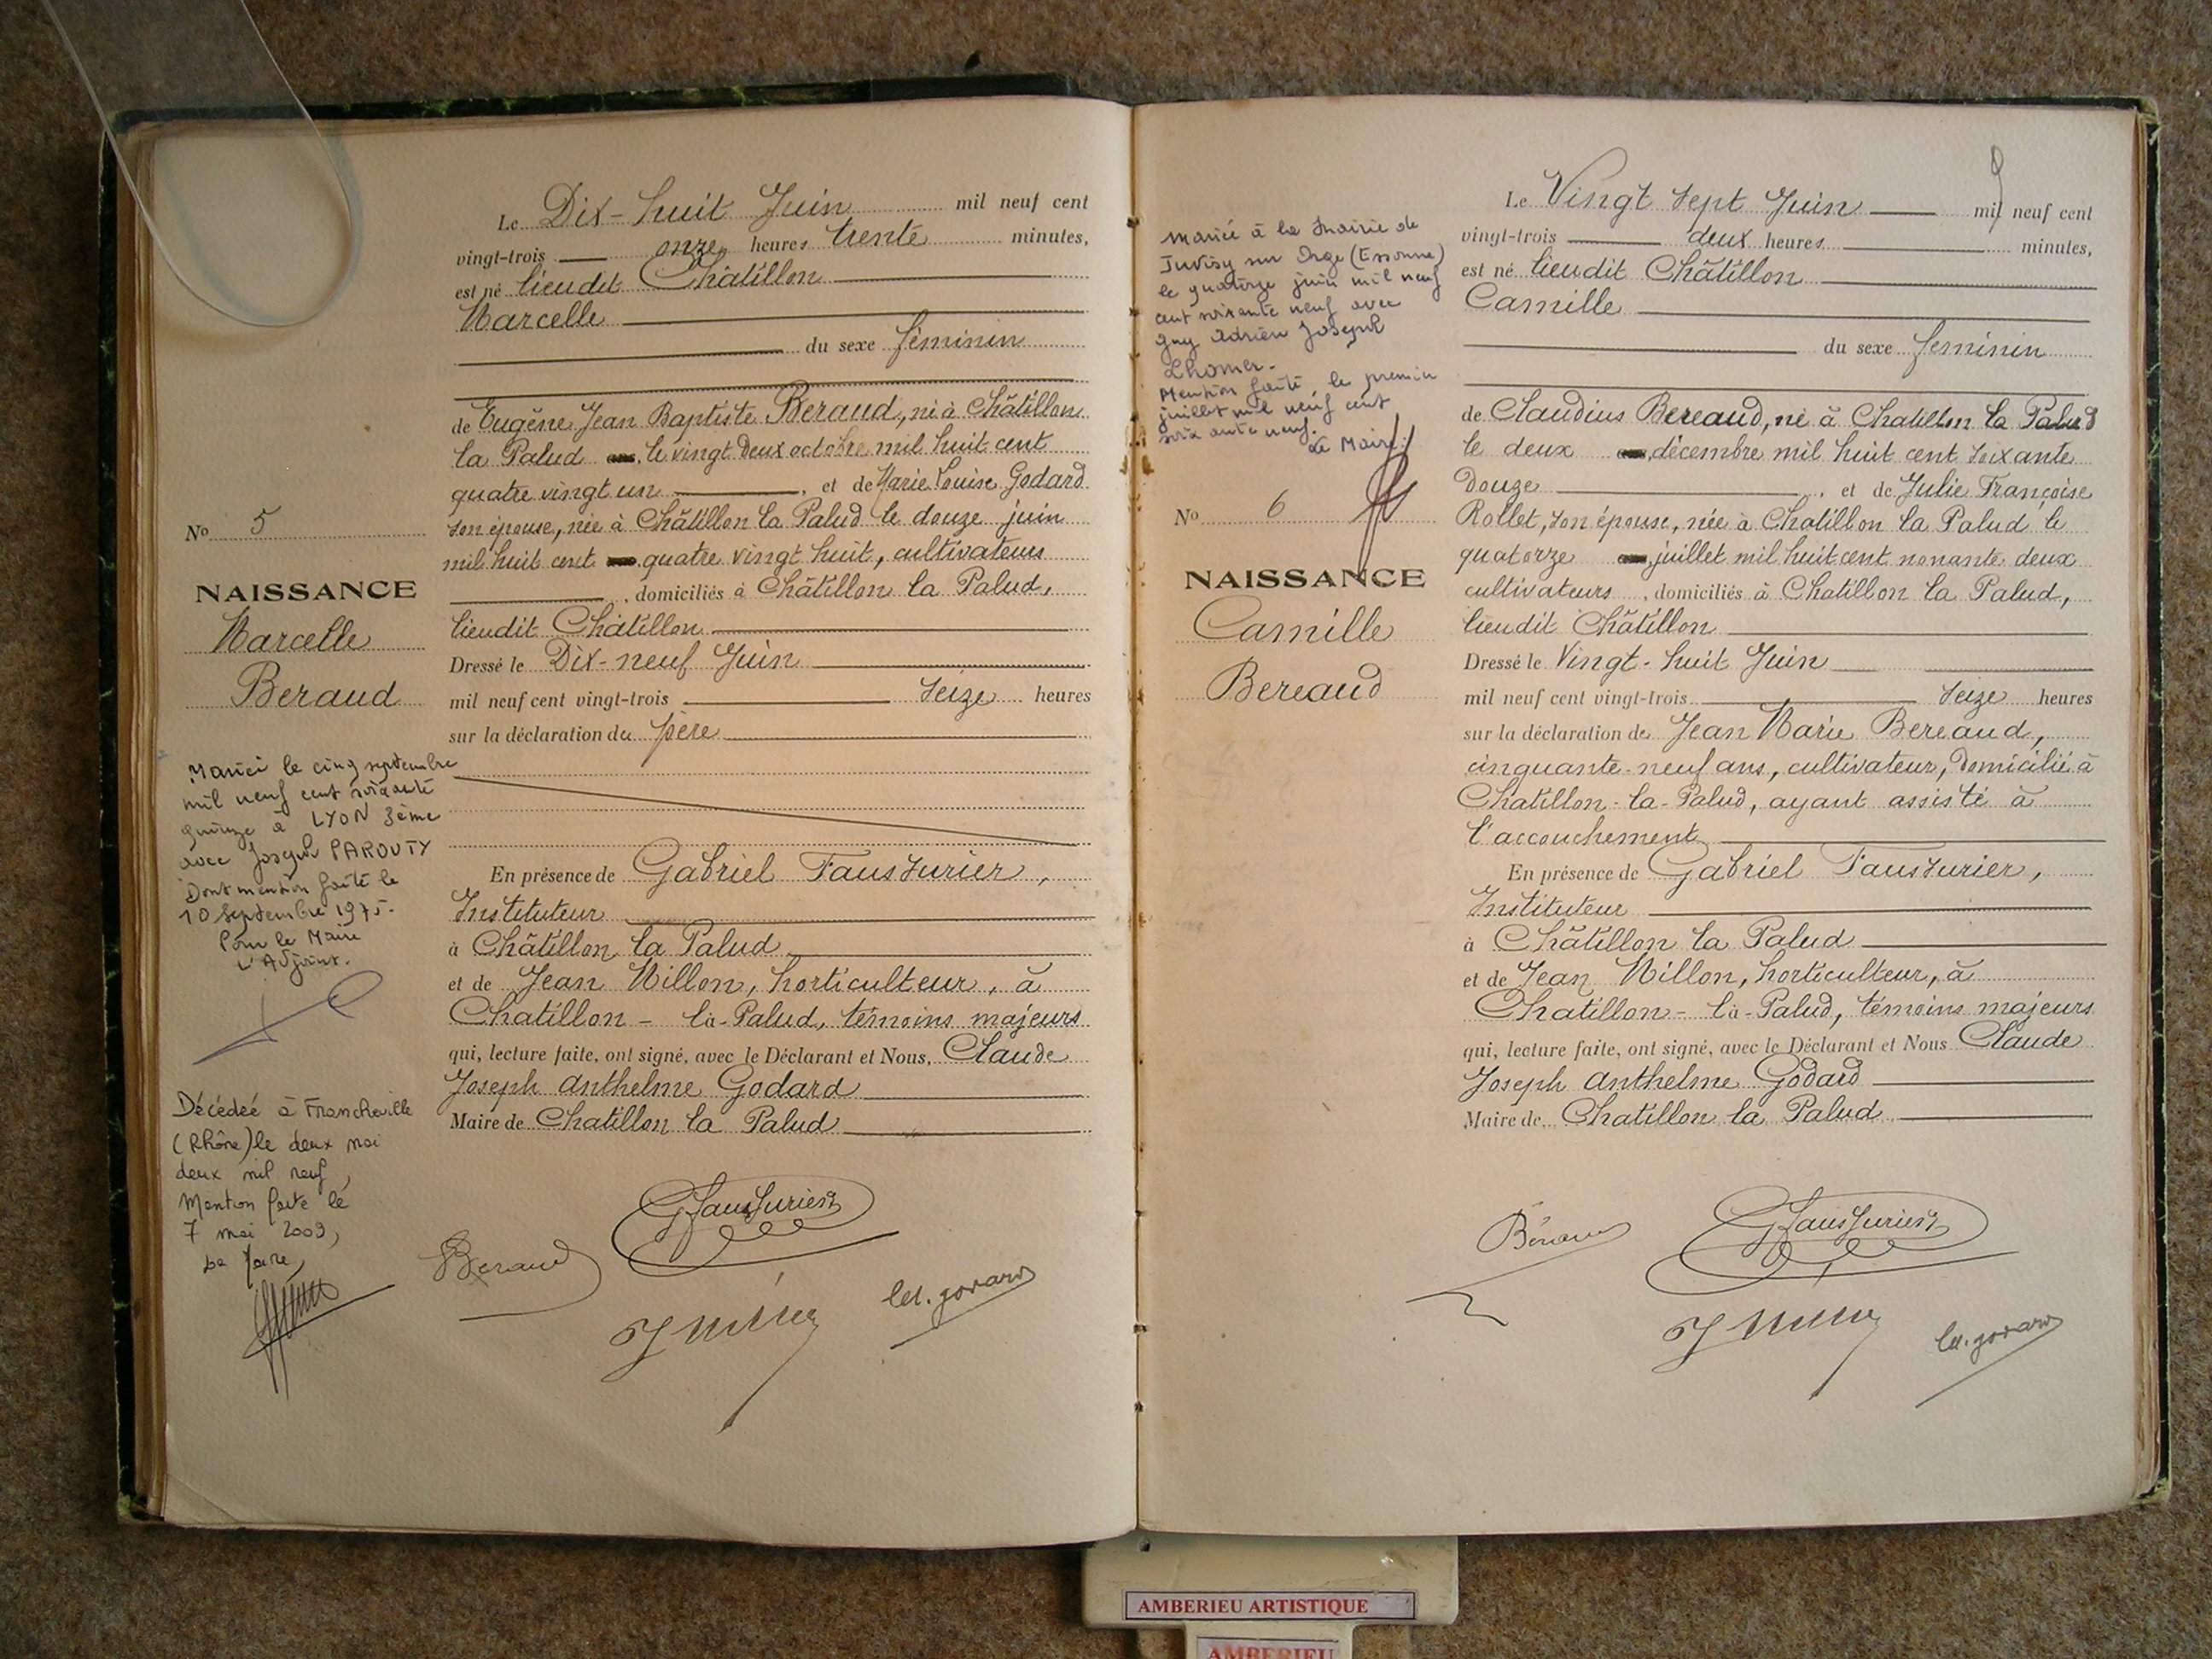 Le Dix-huit Juin mil neuf cent
vingt-trois onze heures trente minutes,
est né lieudit Châtillon
Marcelle
du sexe féminin
de Eugène Jean Baptiste Beraud, né à Châtillon
la Palud le vingt deux octobre mil huit cent
quatre vingt un, et de Marie Louise Godard
son épouse, née à Châtillon la Palud le douze juin
mil huit cent quatre vingt huit, cultivateurs
, domiciliés à Châtillon la Palud,
lieudit Châtillon
Dressé le Dix-neuf Juin
mil neuf cent vingt-trois Seize heures
sur la déclaration du père
En présence de Gabriel Fausturier,
Instituteur
à Châtillon la Palud
et de Jean Millon, horticulteur, à
Chatillon - la-Palud, témoins majeurs
qui, lecture faite, ont signé, avec le Déclarant et Nous, Claude
Joseph Anthelme Godard
Maire de Chatillon la Palud
Beraud
GFausturier
No 5
NAISSANCE
Marcelle
Beraud
Mariée le cinq septembre
mil neuf cent soixante
quinze à LYON 3ème
avec Joseph PAROUTY
Dont mention faite le
10 Septembre 1975.
Pour le Maire
L'Adjoint.
Décédée à Francheville
(Rhône) le deux mai
deux mil neuf,
Mention faite le
7 mai 2009,
Le Maire,
mariée à la Mairie de
Juvisy sur Orge (Essonne)
le quatorze juin mil neuf
cent soixante neuf avec
Guy Adrien Joseph
Lhomer.
Mention faite le premier
juillet mil neuf cent
soixante neuf.
Le Maire:
No 6
NAISSANCE
Camille
Bereaud
9
Le Vingt sept Juin mil neuf cent
vingt-trois deux heures minutes,
est né lieudit Châtillon
Camille
du sexe féminin
de Claudius Bereaud, né à Chatillon la Palud
le deux décembre mil huit cent soixante
douze, et de Julie Françoise
Rollet, son épouse, née à Chatillon la Palud le
quatorze juillet mil huit cent nonante deux
cultivateurs, domiciliés à Chatillon la Palud,
lieudit Châtillon
Dressé le Vingt-huit Juin
mil neuf cent vingt-trois Seize heures
sur la déclaration de Jean Marie Bereaud,
cinquante-neuf ans, cultivateur, domicilié à
Chatillon-la-Palud, ayant assisté à
l'accouchement
En présence de Gabriel Fausturier,
Instituteur
à Châtillon la Palud
et de Jean Millon, horticulteur, à
Chatillon - la-Palud, témoins majeurs
qui, lecture faite, ont signé, avec le Déclarant et Nous Claude
Joseph Anthelme Godard
Maire de Chatillon la Palud
GFausturier
AMBERIEU ARTISTIQUE
AMBERIEU